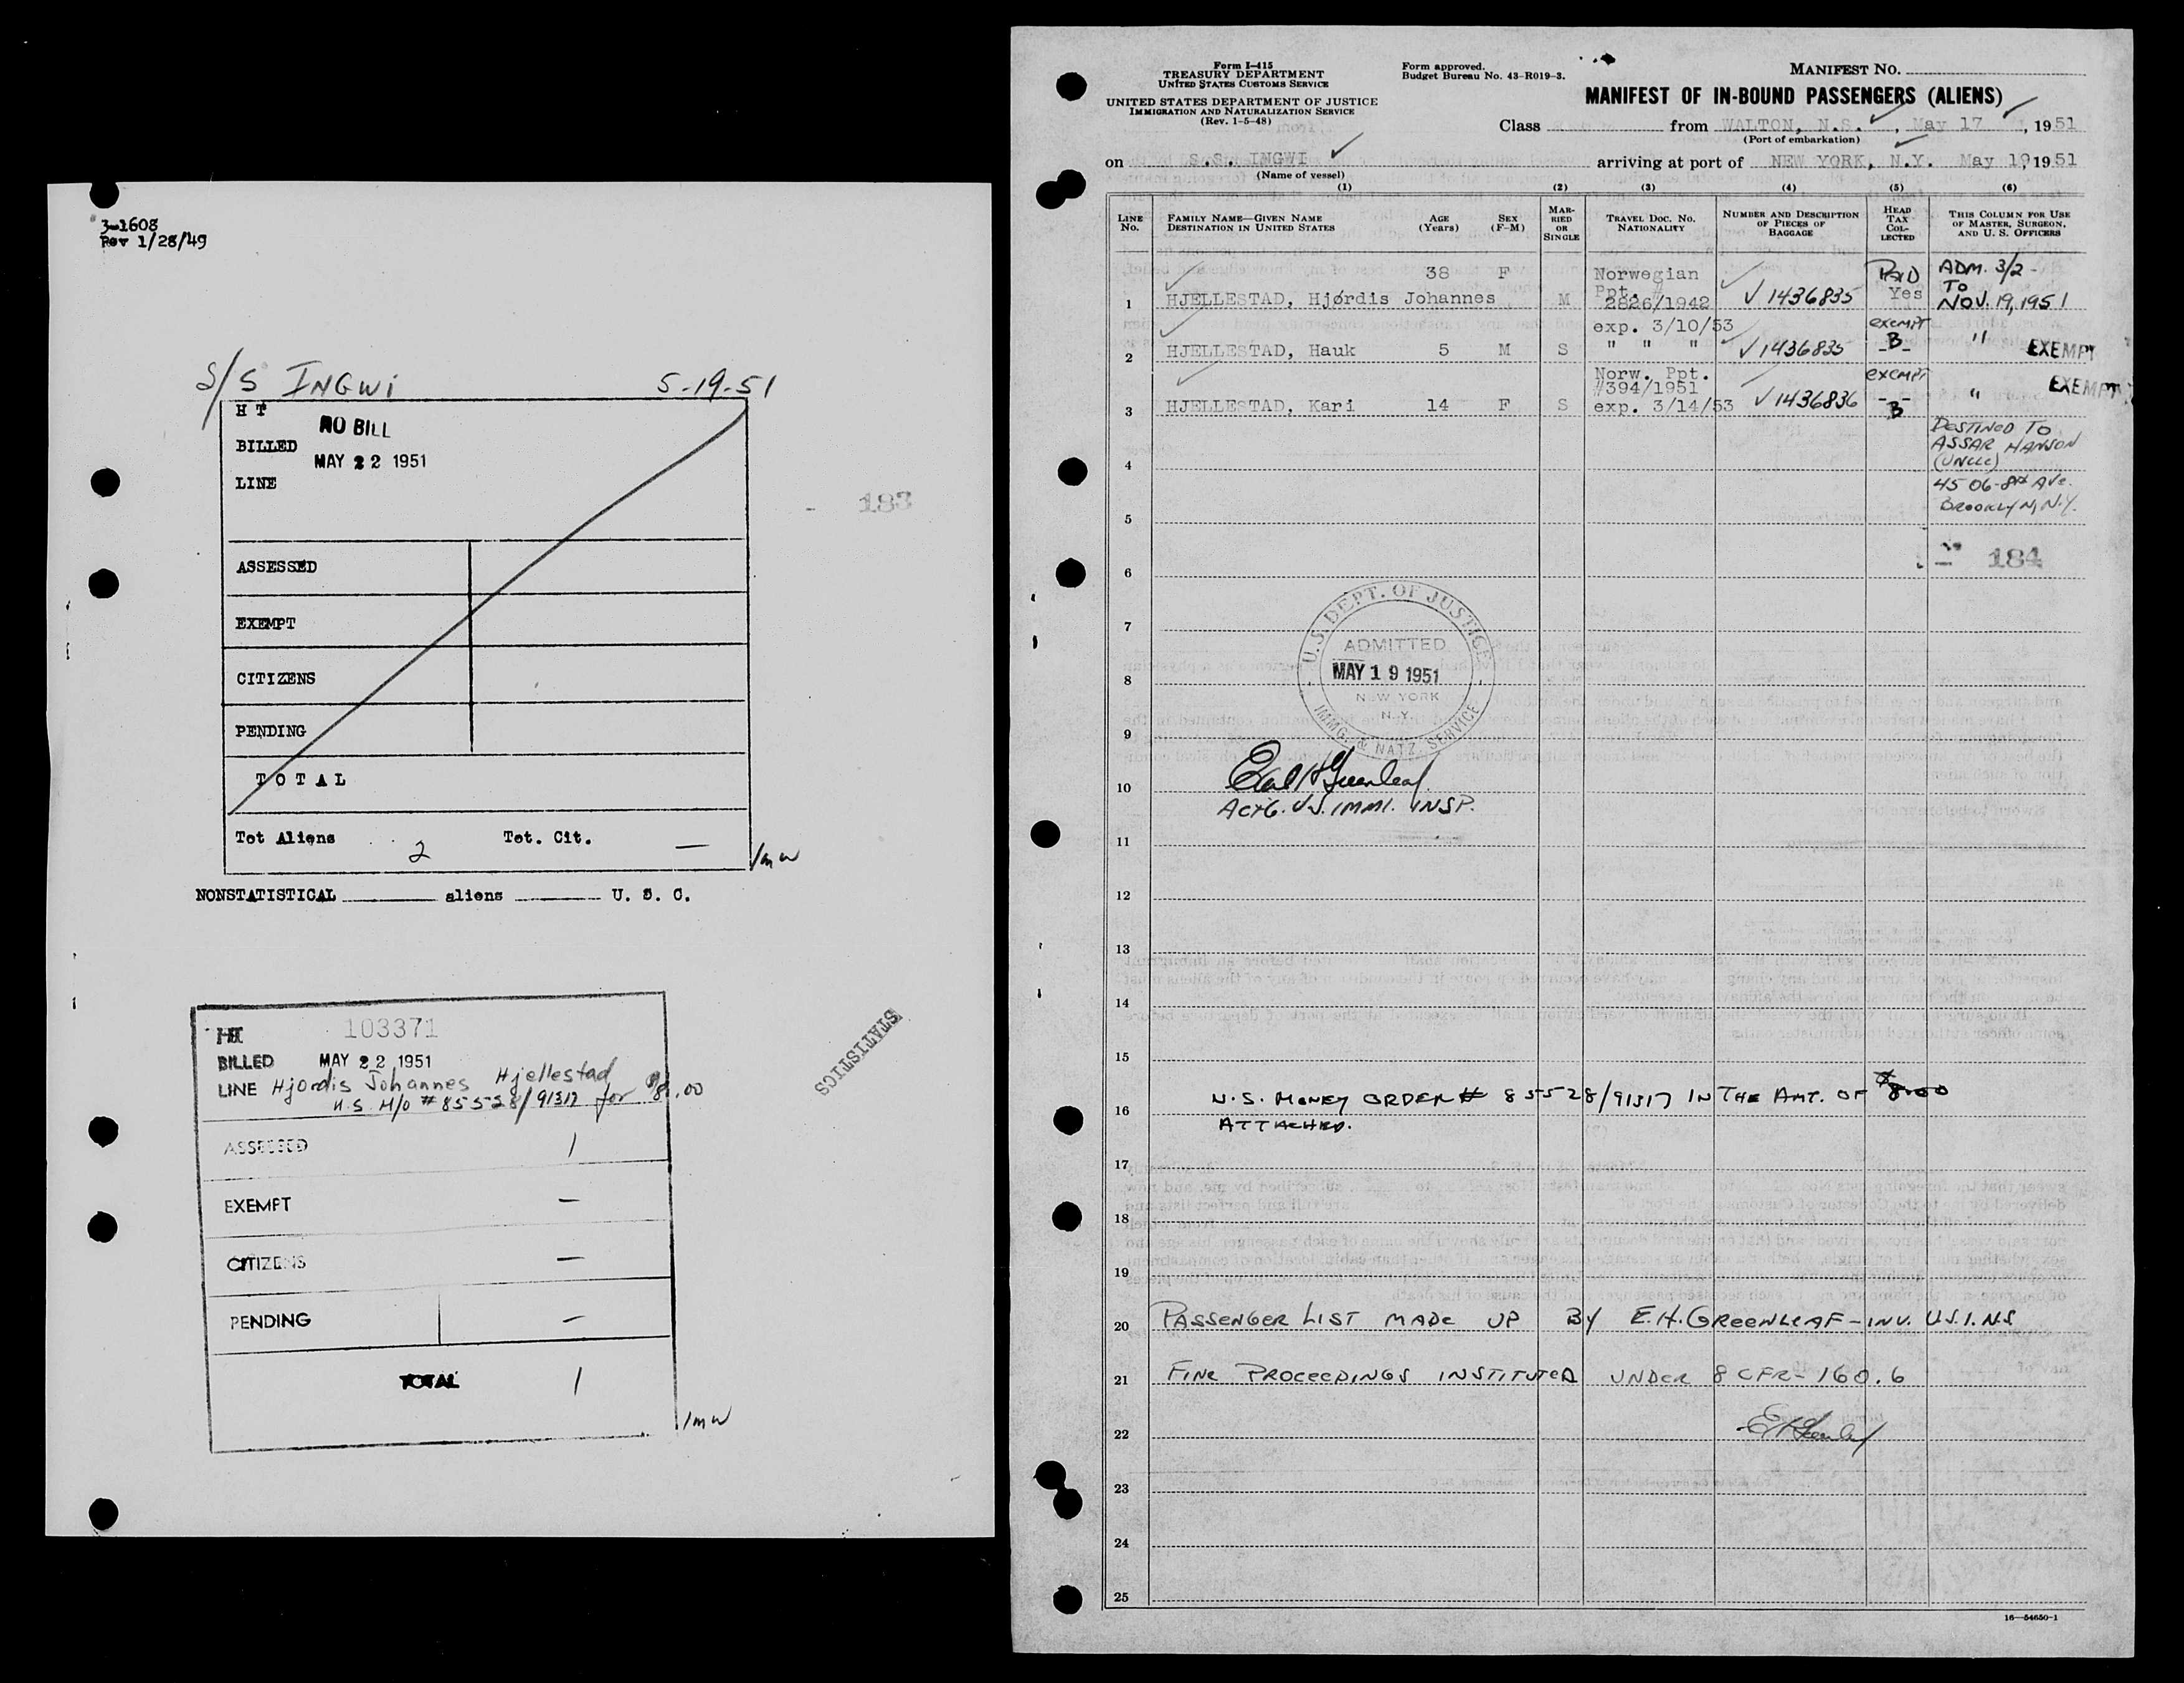 3-1608
Rev 1/28/49
S/S INGWI 5-19-51
HT
NO BILL
BILLED
MAY 22 1951
LINE
183
ASSESSED
EXEMPT
CITIZENS
PENDING
TOTAL
Tot Aliens 2 Tot. Cit. —
/mw
NONSTATISTICAL aliens U. S. C.
HT 103371
BILLED MAY 22 1951
LINE Hjordis Johannes Hjellestad
U.S. M/O #85528/91317 for $8.00
STATISTICS
ASSESSED 1
EXEMPT —
CITIZENS —
PENDING —
TOTAL 1
/mw
Form I-415
TREASURY DEPARTMENT
UNITED STATES CUSTOMS SERVICE
UNITED STATES DEPARTMENT OF JUSTICE
IMMIGRATION AND NATURALIZATION SERVICE
(Rev. 1-5-48)
Form approved.
Budget Bureau No. 43-R019-3.
MANIFEST NO.
MANIFEST OF IN-BOUND PASSENGERS (ALIENS)
Class from WALTON, N.S., May 17, 1951
(Port of embarkation)
on S.S. INGWI arriving at port of NEW YORK, N.Y. May 19, 1951
(Name of vessel)
(1) (2) (3) (4) (5) (6)
LINE No.
FAMILY NAME—GIVEN NAME
DESTINATION IN UNITED STATES
AGE (Years)
SEX (F-M)
MARRIED OR SINGLE
TRAVEL DOC. NO.
NATIONALITY
NUMBER AND DESCRIPTION OF PIECES OF BAGGAGE
HEAD TAX COLLECTED
THIS COLUMN FOR USE OF MASTER, SURGEON, AND U. S. OFFICERS
38 F Norwegian PAID ADM. 3/2-
1 HJELLESTAD, Hjørdis Johannes M Ppt. # 2826/1942 √1436835 Yes TO NOV. 19, 1951
exp. 3/10/53 exempt
2 HJELLESTAD, Hauk 5 M S " " " √1436835 B -- " EXEMPT
Norw. Ppt. exempt
#394/1951 EXEMPT
3 HJELLESTAD, Kari 14 F S exp. 3/14/53 √1436836 -- B "
DESTINED TO
ASSAR HANSON
4 (UNCLE)
4506-8th AVE.
BROOKLYN, N.Y.
5
184
6
7
8
U.S. DEPT. OF JUSTICE
ADMITTED
MAY 19 1951
NEW YORK
N.Y.
IMMG. & NATZ. SERVICE
9
Earl H Greenleaf
10
ACTG. U.S. IMMI. INSP.
11
12
13
14
15
16 U.S. MONEY ORDER # 85528/91317 IN THE AMT. OF $8.00
ATTACHED.
17
18
19
20 PASSENGER LIST MADE UP BY E.H. GREENLEAF-INV. U.S.I.N.S
21 FINE PROCEEDINGS INSTITUTED UNDER 8 CFR-160.6
22 EHGreenleaf
23
24
25
16—54650-1